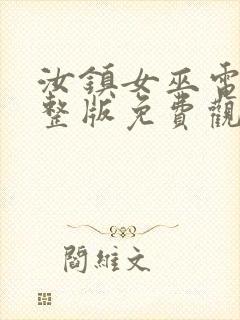 汝鎮女巫電
整版免費觀
閻維文